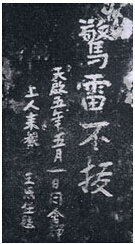 驚雷不拔
天啟五年五月一日同
上人来 王思任題